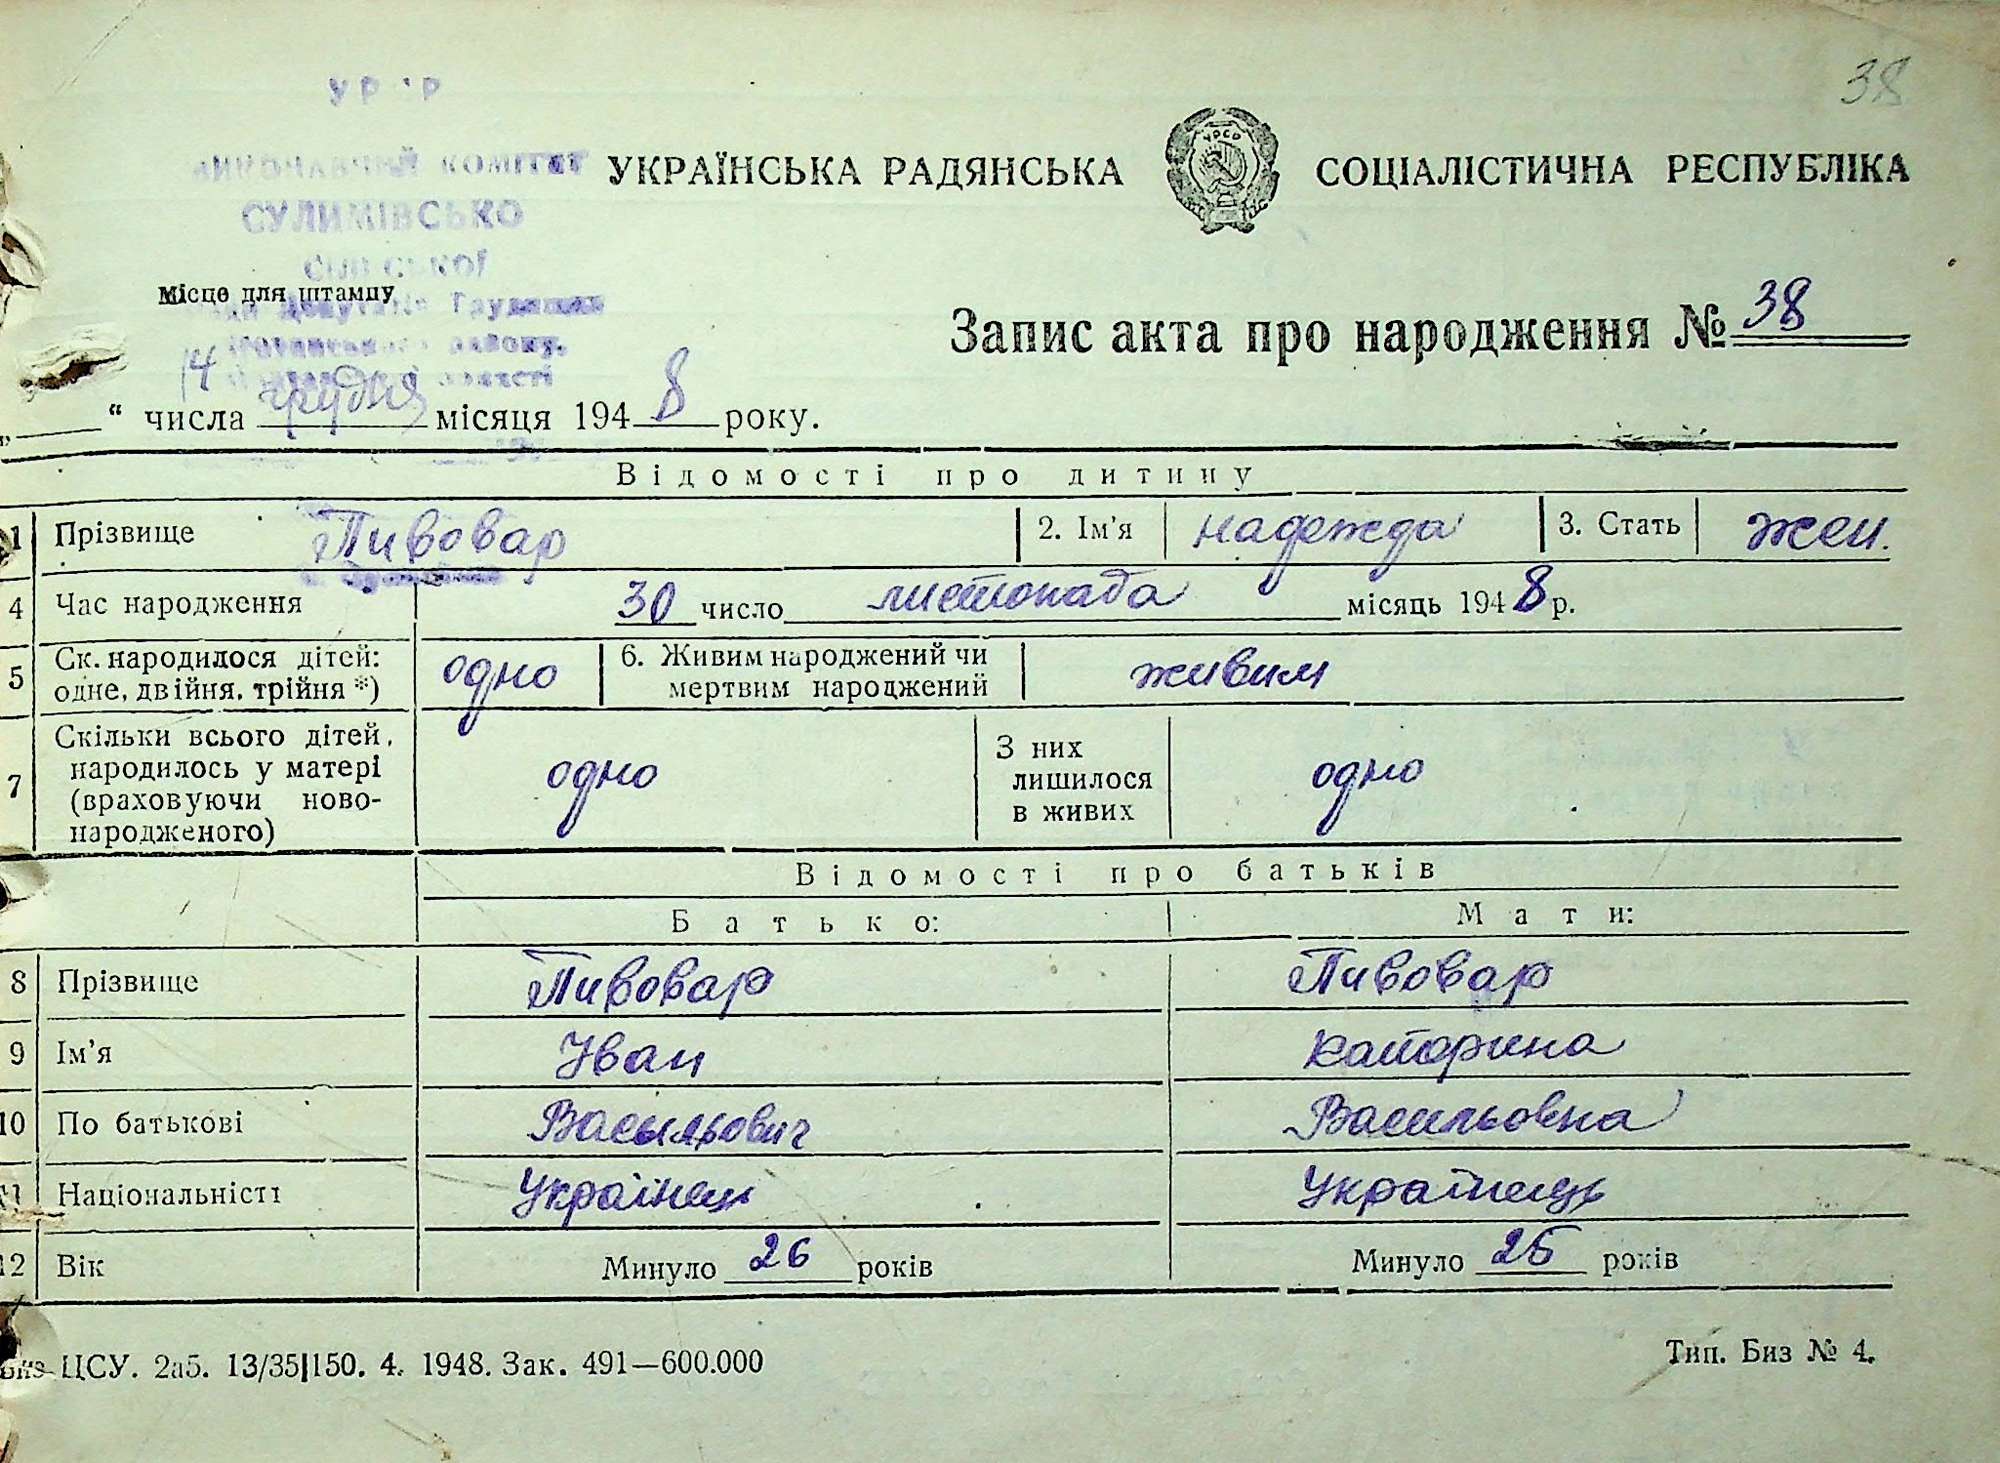 38
УРСР
ВИКОНАВЧИЙ КОМІТЕТ
СУЛИМІВСЬКО
СІЛЬСЬКОЇ
Ради Депутатів Трудящих
району.
області
УКРАЇНСЬКА РАДЯНСЬКА СОЦІАЛІСТИЧНА РЕСПУБЛІКА
ЧРСР
Місце для штампу
Запис акта про народження № 38
„ 14 “ числа грудня місяця 1948 року.
Відомості про дитину
1 Прізвище Пивовар 2. Ім'я надежда 3. Стать жен.
4 Час народження 30 число листопада місяць 1948 р.
5 Ск. народилося дітей: одне, двійня, трійня *) одно 6. Живим народжений чи мертвим народжений живим
7 Скільки всього дітей, народилось у матері (враховуючи ново-народженого) одно З них лишилося в живих одно
Відомості про батьків
Батько: Мати:
8 Прізвище Пивовар Пивовар
9 Ім'я Іван Катерина
10 По батькові Васыльович Васильовна
11 Національність Українец Українець
12 Вік Минуло 26 років Минуло 25 років
Биз ЦСУ. 2аб. 13/35|150. 4. 1948. Зак. 491—600.000
Тип. Биз № 4.